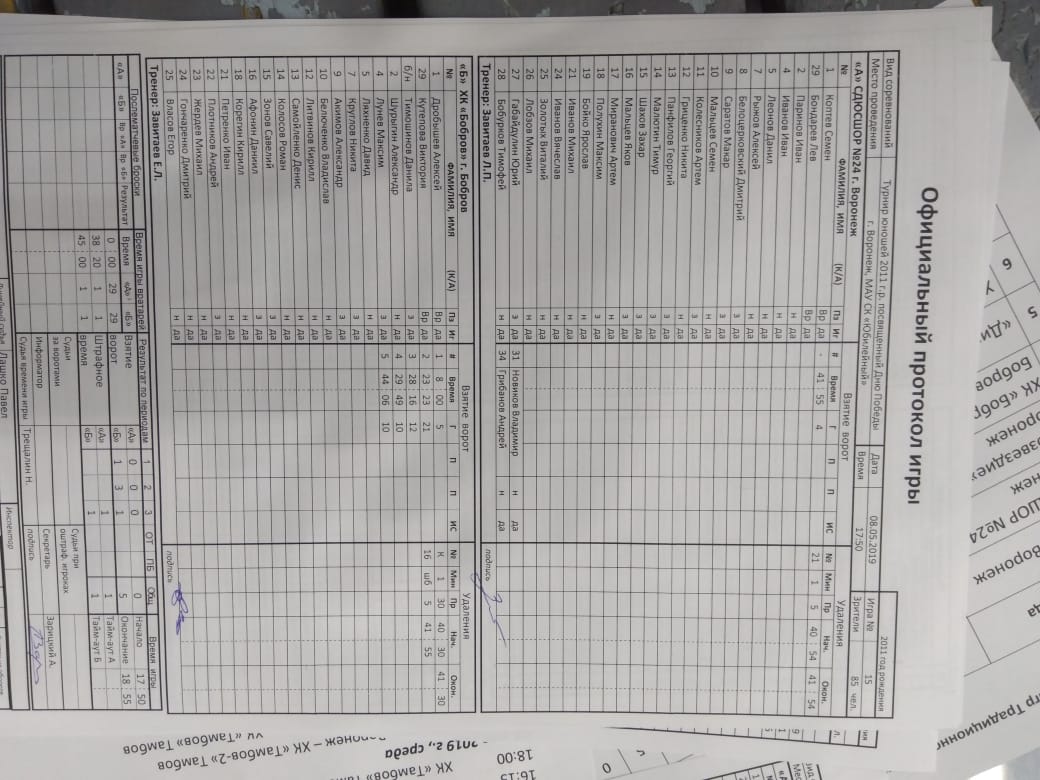 Официальный протокол игры
Вид соревнования Турнир юношей 2011 г.р. посвященный Дню Победы Дата 08.05.2019 Игра № 15 2011 год рождения
Место проведения г. Воронеж, МАУ СК «Юбилейный» Время 17:50 Зрители 85 чел.
«А» СДЮСШОР №24 г. Воронеж Взятие ворот Удаления
№ ФАМИЛИЯ, ИМЯ (К/А) Пз Иг # Время Г П П ИС № Мин Пр Нач. Окон.
1 Коптев Семен Вр да - 41 55 4 21 1 5 40 54 41 54
29 Бондарев Лев Вр да
2 Паринов Иван
4 Иванов Иван н да
5 Леонов Данил н да
7 Рыжов Алексей
8 Белоцерковский Дмитрий з да
9 Саратов Макар з да
10 Мальцев Семен н да
11 Колесников Артем н да
12 Гриценко Никита н да
13 Панфилов Егор з да
14 Малютин Тимур н да
15 Шахов Захар з да
16 Мальцев Яков н да
17 Миранович Артем н да
18 Полухин Максим з да
19 Бойко Ярослав н да
21 Иванов Михаил н да
24 Иванов Вячеслав н да
25 Золотых Виталий з да
26 Лобзов Михаил н да
27 Габайдулин Юрий з да 31 Новиков Владимир н да
28 Бабурков Тимофей н да 34 Грибанов Андрей н да
Тренер: Завитаев Л.П. подпись
«Б» ХК «Бобров» г. Бобров Взятие ворот Удаления
№ ФАМИЛИЯ, ИМЯ (К/А) Пз Иг # Время Г П П ИС № Мин Пр Нач. Окон.
1 Дробышев Алексей Вр да 1 8 00 5 К 1 30 40 30 41 30
29 Кутепова Виктория Вр да 2 23 23 21 16 шб 5 41 55
б/н Тимошинов Данила з да 3 28 16 12
2 Шурыгин Александр н да 4 29 49 10
4 Лунев Максим з да 5 44 06 10
5 Лихненко Давид н да
7 Круглов Никита з да
9 Акимов Александр з да
10 Белюченко Владислав з да
12 Литвинов Кирилл н да
13 Самойленко Денис н да
14 Колосов Роман н да
15 Зонов Савелий з да
16 Афонин Даниил з да
18 Корепин Кирилл н да
21 Петренко Иван н да
22 Плотников Андрей з да
23 Жердев Михаил н да
24 Гончаренко Дмитрий н да
25 Власов Егор н да
Тренер: Завитаев Е.Л. подпись
Послематчевые броски Время игры вратарей Результат по периодам 1 2 3 ОТ ПБ Общ Время игры
«А» «Б» Вр «А» Вр «Б» Результат Время «А» «Б» Взятие ворот «А» 0 0 0 0 Начало 17 50
0 00 29 29 «Б» 1 3 1 5 Окончание 18 55
38 20 1 1 Штрафное время «А» 1 1 Тайм-аут А
45 00 1 1 «Б» 1 1 Тайм-аут Б
Судьи за воротами Судьи при оштраф. игроках
Информатор Секретарь Зарицкий А.
Судья времени игры Трещалин Н. подпись
Лашко Павел Инспектор
6
5
«Ди
Бобров
ХК «Бобр
оронеж
ШОР №24
Воронеж
18:00
16:15
2019 г., среда
ХК «Тамбов»
Воронеж – ХК «Тамбов-2» Тамбов
ХК «Тамбов» Тамбов